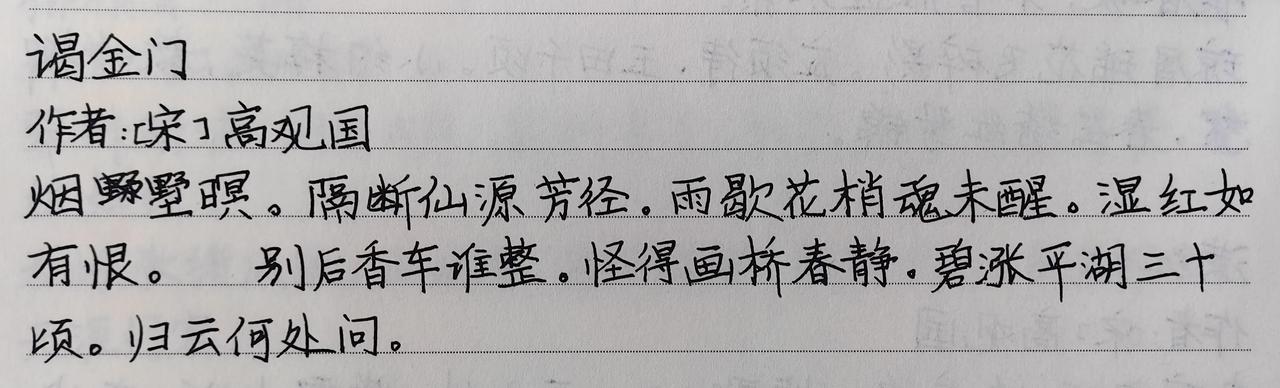 谒金门
作者:[宋]高观国
烟墅暝。隔断仙源芳径。雨歇花梢魂未醒。湿红如
有恨。 别后香车谁整。怪得画桥春静。碧涨平湖三十
顷。归云何处问。